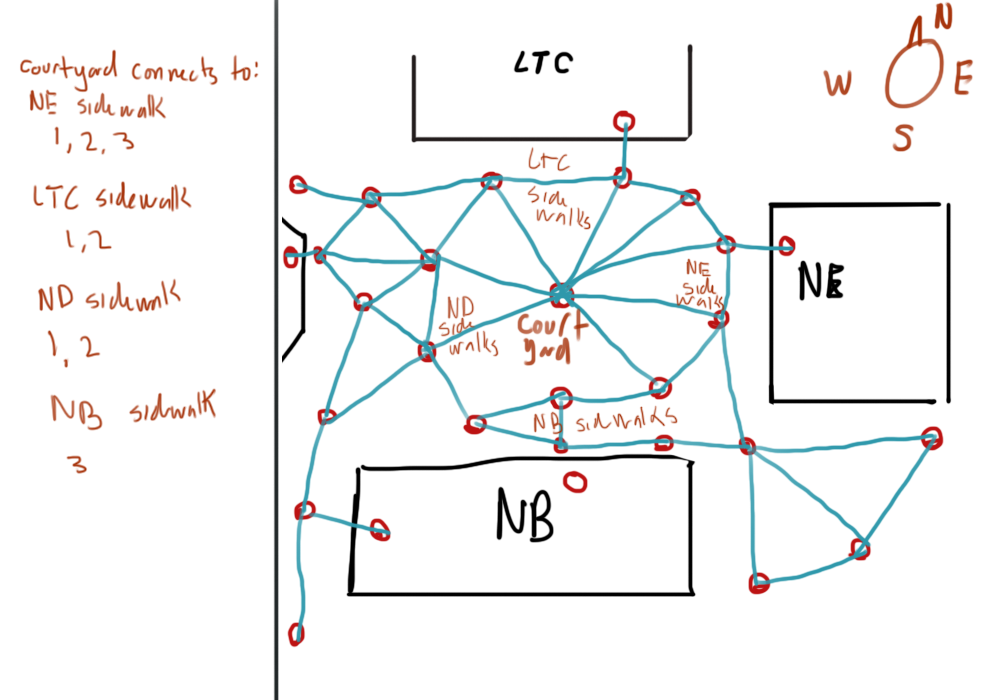 Courtyard connects to:
NE sidewalk
1, 2, 3
LTC sidewalk
1, 2
ND sidewalk
1, 2
NB sidewalk
3
LTC
N
W
E
S
LTC
side
walks
NE
side
walks
NE
ND
side
walks
Court
yard
NB sidewalks
NB